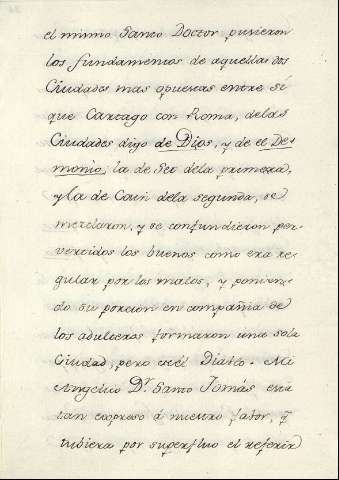 el mismo Santo Doctor pusieron
los fundamentos de aquellas dos
Ciudades mas opuestas entre sí
que Cartago con Roma, delas
Ciudades digo de Dios, y de el De-
monio, la de Set dela primera,
y la de Cain dela segunda, se
mezclaron, y se confundieron per-
vertidos los buenos como era re-
gular por los malos, y ponien-
do su porcion en compañia de
los adulteros formaron una sola
Ciudad, pero del Diablo. Mi
Angelico Dr. Santo Tomás está
tan expreso á nuestro fabor, q
tubiera por superfluo el referir